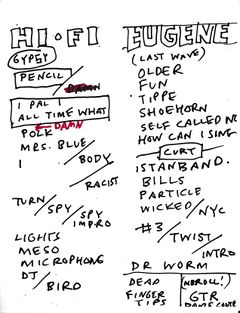 HI·FI
GYPSY
PENCIL/
DAMN
1 PAL 1
ALL TIME WHAT
POLK ← DAMN
MRS. BLUE/
1 BODY/
RACIST
TURN/SPY/SPY
IMPRO
LIGHTS
MESO
MICROPHONE
DJ/BIRD
EUGENE
(LAST WAVE)
OLDER
FUN
TIPPE
SHOEHORN
SELF CALLED NO
HOW CAN I SING
CURT
ISTANBAND.
BILLS
PARTICLE
WICKED/NYC
#3/TWIST/
INTRO
DR WORM
DEAD
FINGER
TIPS
(NOROLL!)
GTR